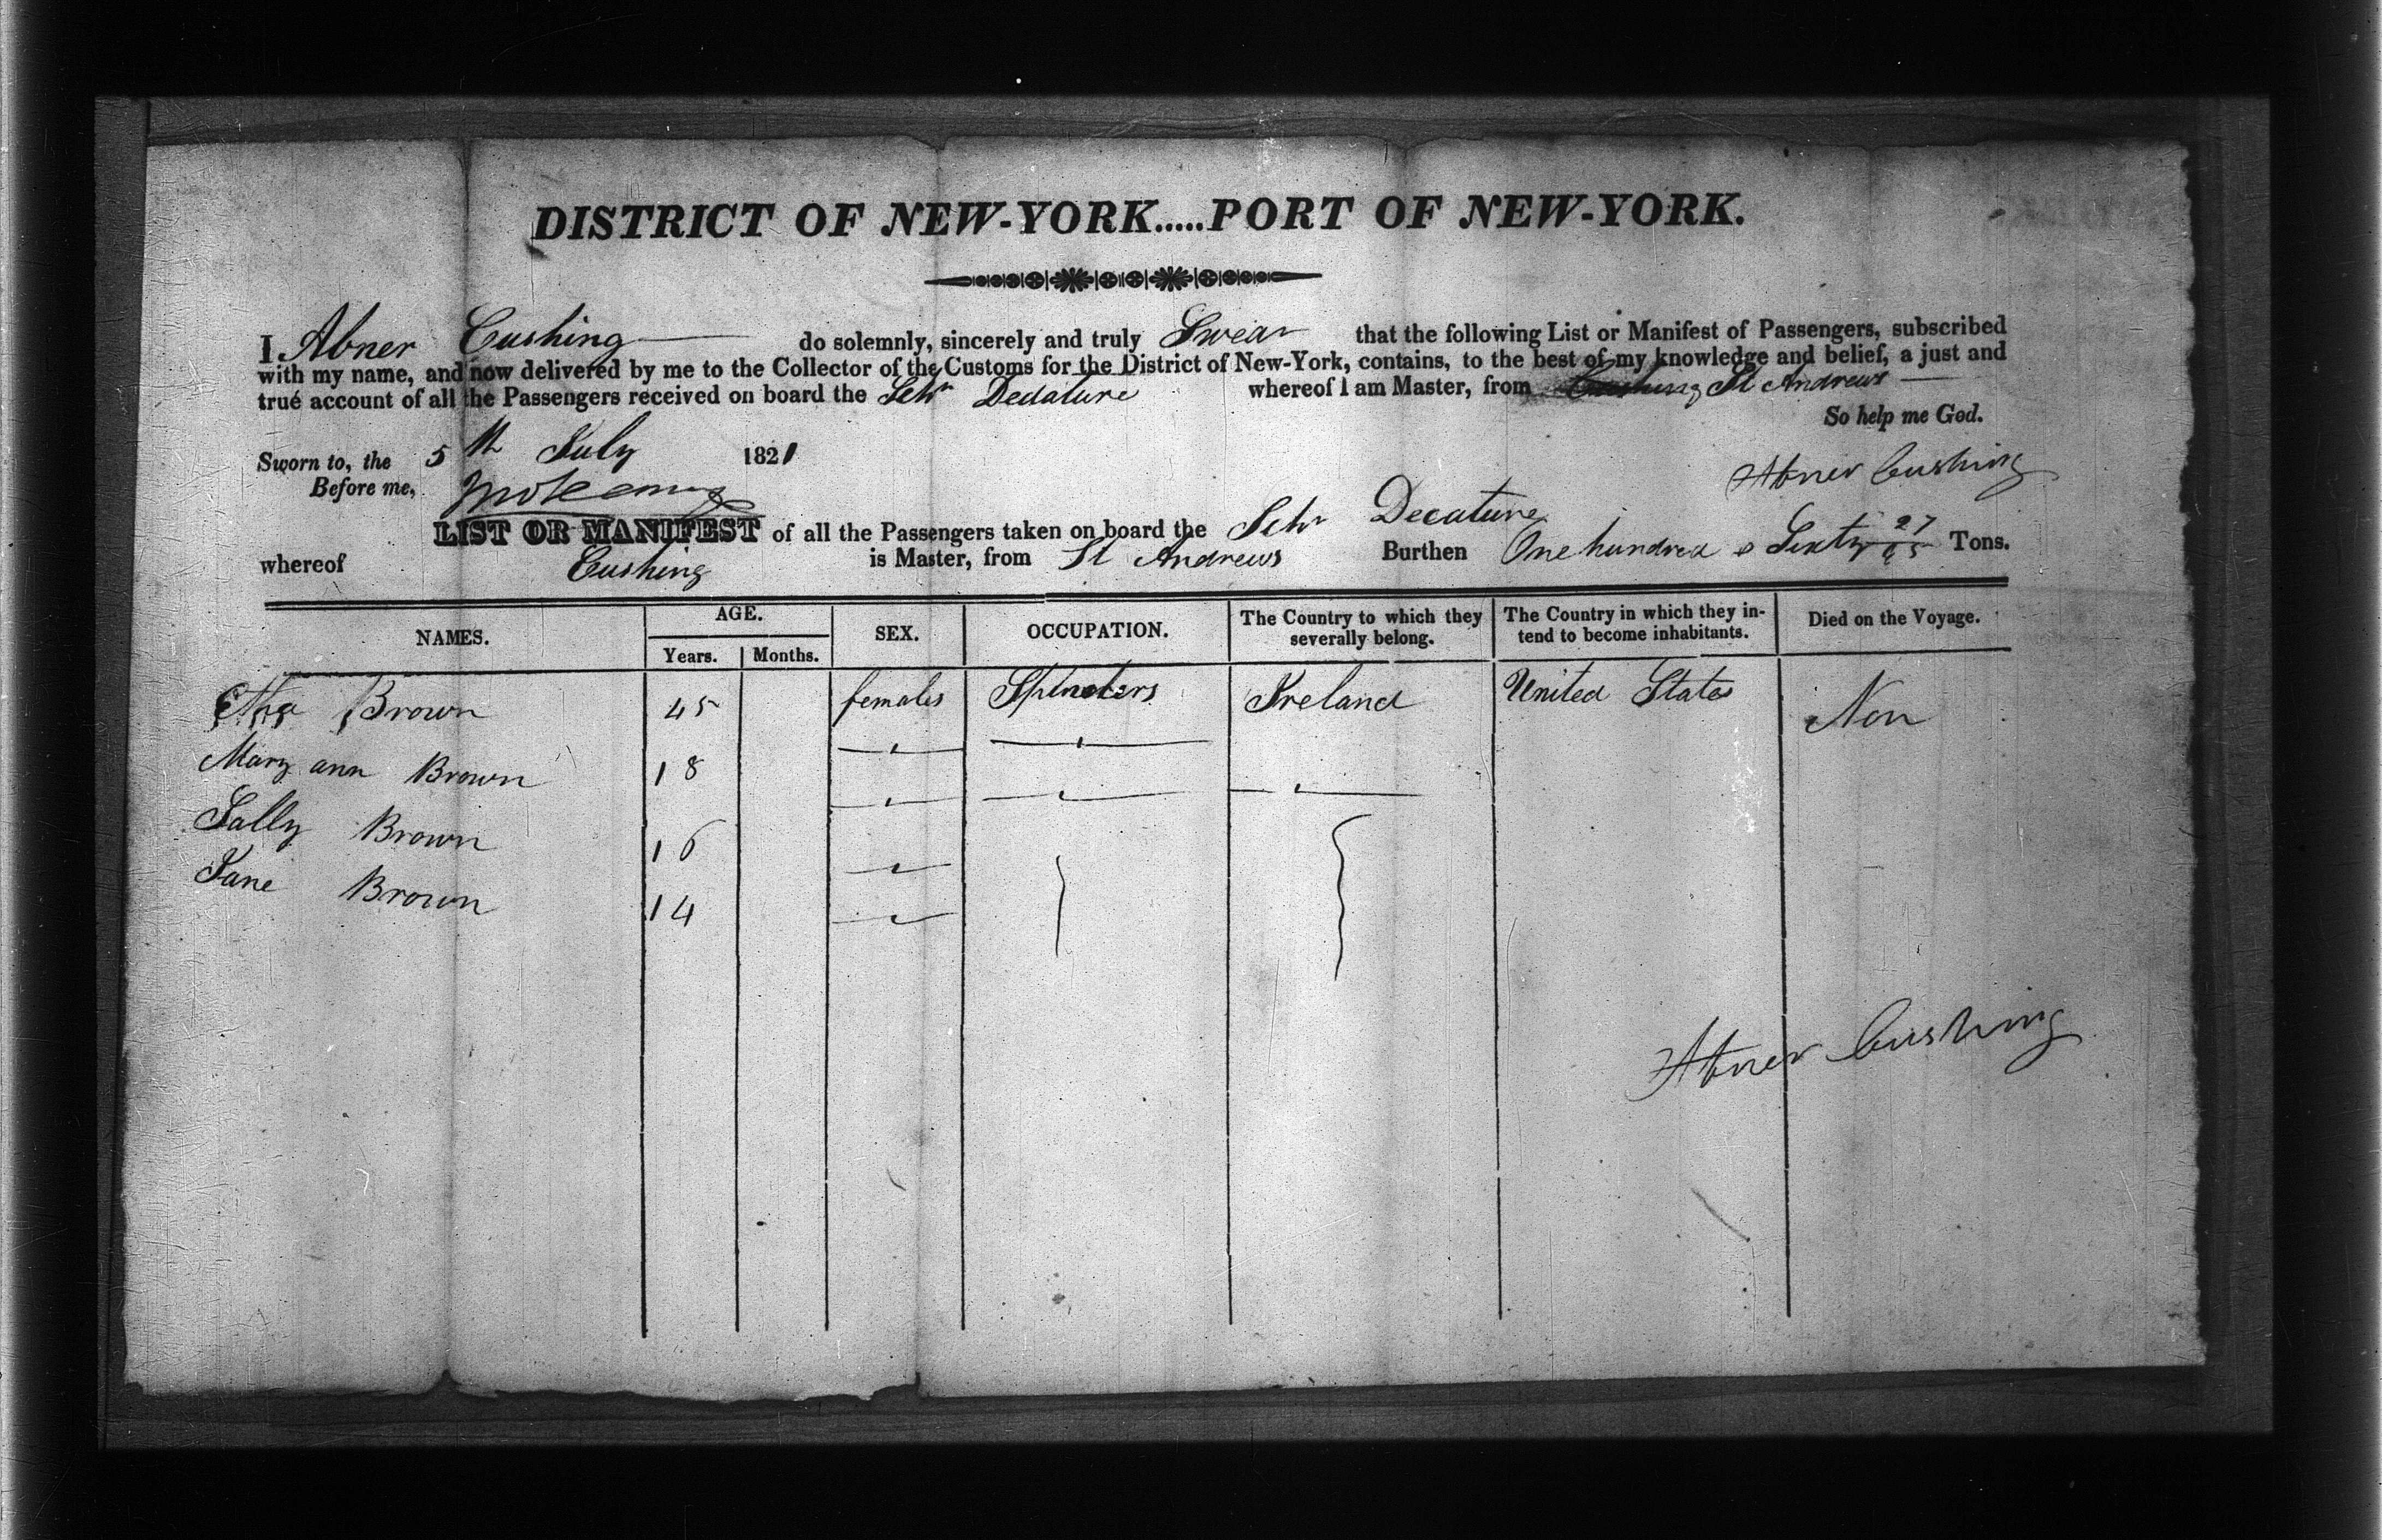 DISTRICT OF NEW-YORK.....PORT OF NEW-YORK.
I Abner Cushing do solemnly, sincerely and truly Swear that the following List or Manifest of Passengers, subscribed
with my name, and now delivered by me to the Collector of the Customs for the District of New-York, contains, to the best of my knowledge and belief, a just and
true account of all the Passengers received on board the Schr Decature whereof I am Master, from St Andrews
So help me God.
Sworn to, the 5th July 1821
Abner Cushing
Before me,
LIST OR MANIFEST of all the Passengers taken on board the Schr Decature
whereof Cushing is Master, from St Andrews Burthen One hundred & Sixty 27/95 Tons.
NAMES. AGE. SEX. OCCUPATION. The Country to which they severally belong. The Country in which they intend to become inhabitants. Died on the Voyage.
Years. Months.
Brown 45 females Spinsters Ireland United States Non
Mary ann Brown 18
Sally Brown 16
Jane Brown 14
Abner Cushing